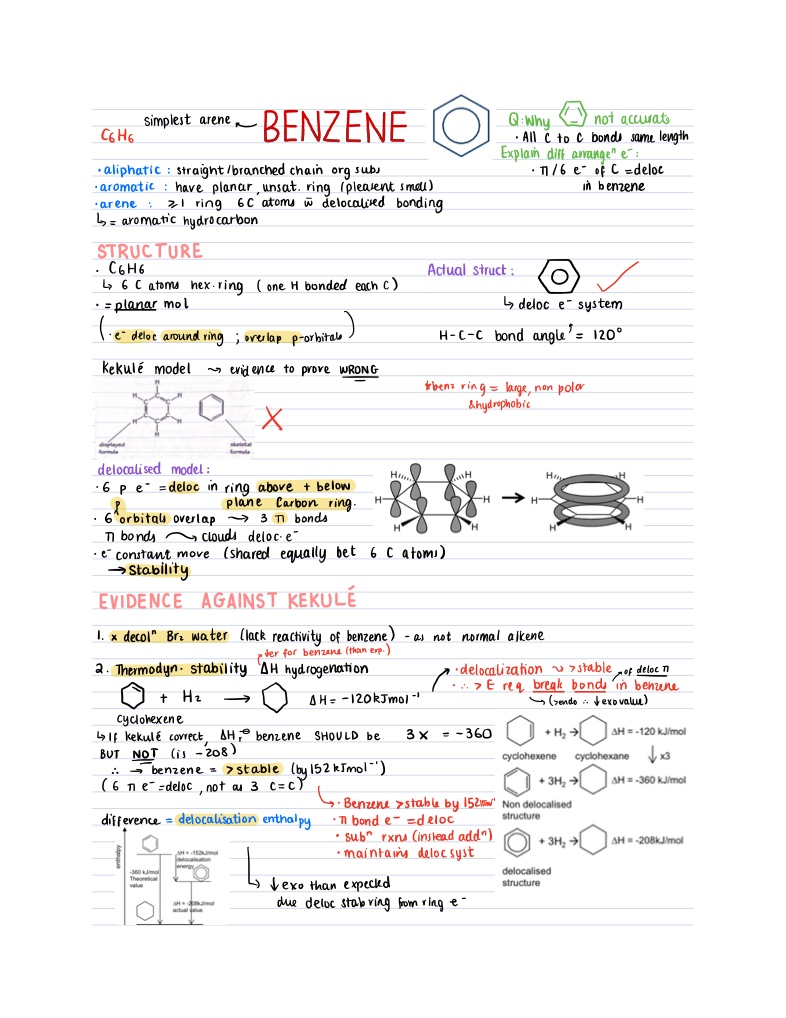 simplest arene
BENZENE
C6H6
Q: Why not accurate
· All C to C bonds same length
Explain diff arrangeⁿ e⁻:
· π/6 e⁻ of C = deloc
in benzene
· aliphatic : straight/branched chain org subs
· aromatic : have planar, unsat. ring (pleasent smell)
· arene : ≥1 ring 6C atoms w̄ delocalised bonding
↳ = aromatic hydrocarbon
STRUCTURE
· C6H6
↳ 6 C atoms hex. ring (one H bonded each C)
· = planar mol
(· e⁻ deloc around ring ; overlap p-orbitals)
Actual struct :
↳ deloc e⁻ system
H-C-C bond angle = 120°
Kekulé model ⤳ evidence to prove WRONG
*benz ring = large, non polar
& hydrophobic
displayed formula
skeletal formula
delocalised model:
· 6 p e⁻ = deloc in ring above + below
plane Carbon ring.
· 6 p orbitals overlap → 3 π bonds
π bonds → clouds deloc. e⁻
· e⁻ constant move (shared equally bet 6 C atoms)
→ Stability
EVIDENCE AGAINST KEKULÉ
1. x decolⁿ Br₂ water (lack reactivity of benzene) - as not normal alkene
↱ter for benzene (than exp.)
2. Thermodyn. stability ΔH hydrogenation
+ H₂ → ΔH = -120kJmol⁻¹
cyclohexene
· delocalization ⤳ >stable of deloc π
· ∴ > E req break bonds in benzene
↳ (>endo ∴ ↓exo value)
↳ If kekulé correct, ΔHr⦵ benzene SHOULD be 3 x = -360
BUT NOT (is -208)
∴ → benzene = >stable (by 152kJmol⁻¹)
( 6 π e⁻ = deloc, not as 3 C=C)
· Benzene > stable by 152kJmol⁻¹
· π bond e⁻ = deloc
· subⁿ rxns (instead addⁿ)
· maintains deloc syst
difference = delocalisation enthalpy
enthalpy
-360 kJ/mol
Theoretical
value
ΔH = -152kJ/mol
delocalisation
energy
ΔH = -208kJ/mol
actual value
↳ ↓exo than expected
due deloc stab ring from ring e⁻
+ H₂ → ΔH = -120 kJ/mol
cyclohexene cyclohexane x3
+ 3H₂ → ΔH = -360 kJ/mol
Non delocalised
structure
+ 3H₂ → ΔH = -208kJ/mol
delocalised
structure